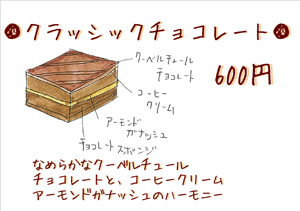 クラッシックチョコレート
600円
クーベルチュール
チョコレート
コーヒー
クリーム
アーモンド
ガナッシュ
チョコレートスポンジ
なめらかなクーベルチュール
チョコレートと、コーヒークリーム
アーモンドガナッシュのハーモニー